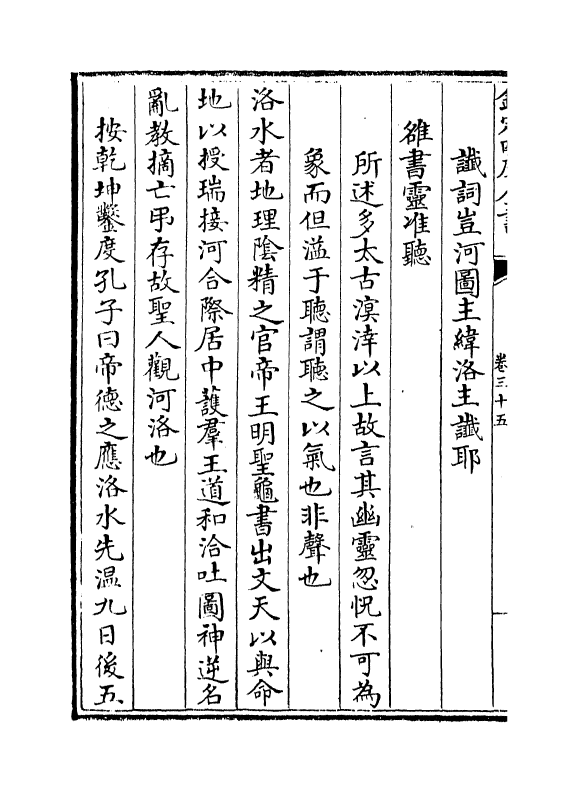 欽定四庫全書
卷三十五
讖詞豈河圖主緯洛主讖耶
雒書靈准聽
所述多太古溟涬以上故言其幽靈忽怳不可為
象而但溢于聽謂聽之以氣也非聲也
洛水者地理陰精之官帝王明聖龜書出文天以與命
地以授瑞接河合際居中護羣王道和洽吐圖神逆名
亂教摘亡弔存故聖人觀河洛也
按乾坤鑿度孔子曰帝德之應洛水先温九日後五